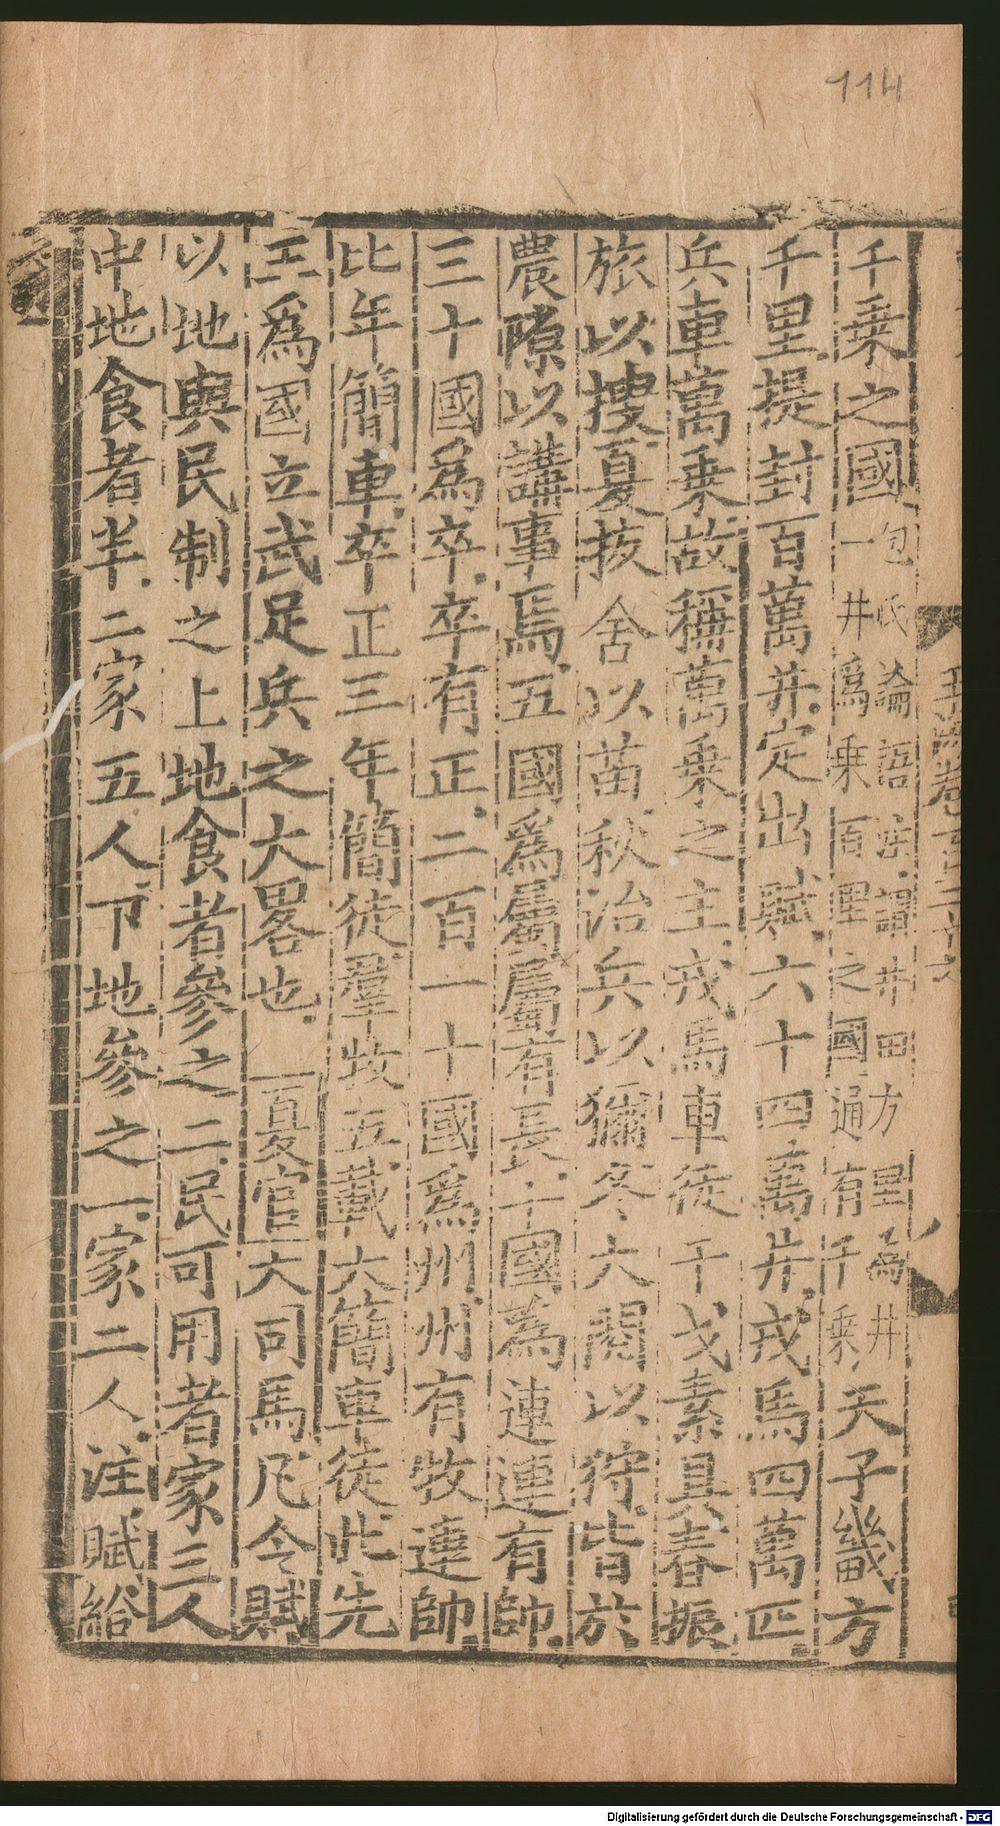 114
千乘之國包氏論語注謂井田方里爲井
一井爲乘百里之國適有千乘天子畿方
千里提封百萬井定出賦六十四萬井戎馬四萬匹
兵車萬乘故稱萬乘之主戎馬車徒干戈素具春振
旅以搜夏拔舍以苗秋治兵以獮冬大閱以狩皆於
農隙以講事焉五國爲屬屬有長十國爲連連有帥
三十國爲卒卒有正二百一十國爲州州有牧連帥
比年簡車卒正三年簡徒羣牧五載大簡車徒此先
王爲國立武足兵之大畧也夏官大司馬凡令賦
以地與民制之上地食者參之二民可用者家三人
中地食者半二家五人下地參之一家二人注賦給
Digitalisierung gefördert durch die Deutsche Forschungsgemeinschaft - DFG